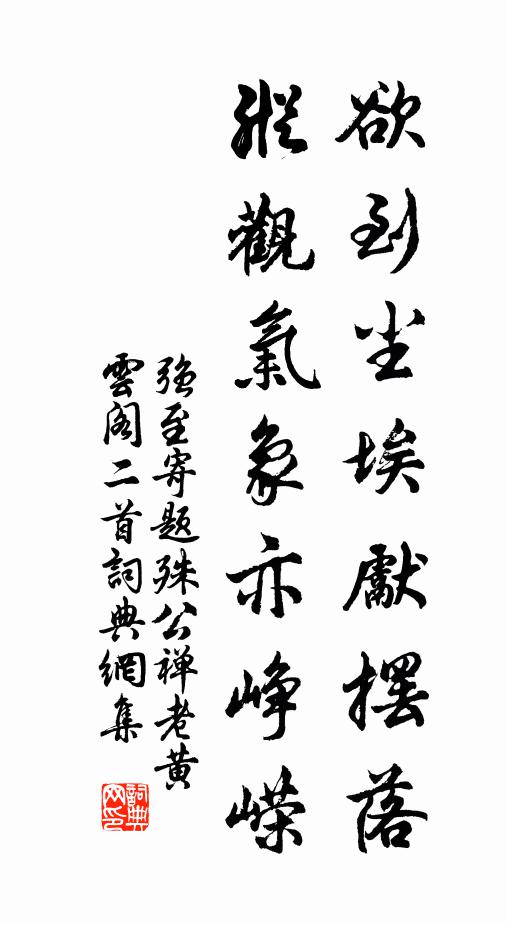 欲到尘埃獻摆落
縱觀氣象亦峥嵘
强至寄题殊公禅老黄
雲阁二首詞典網集
詞典网印